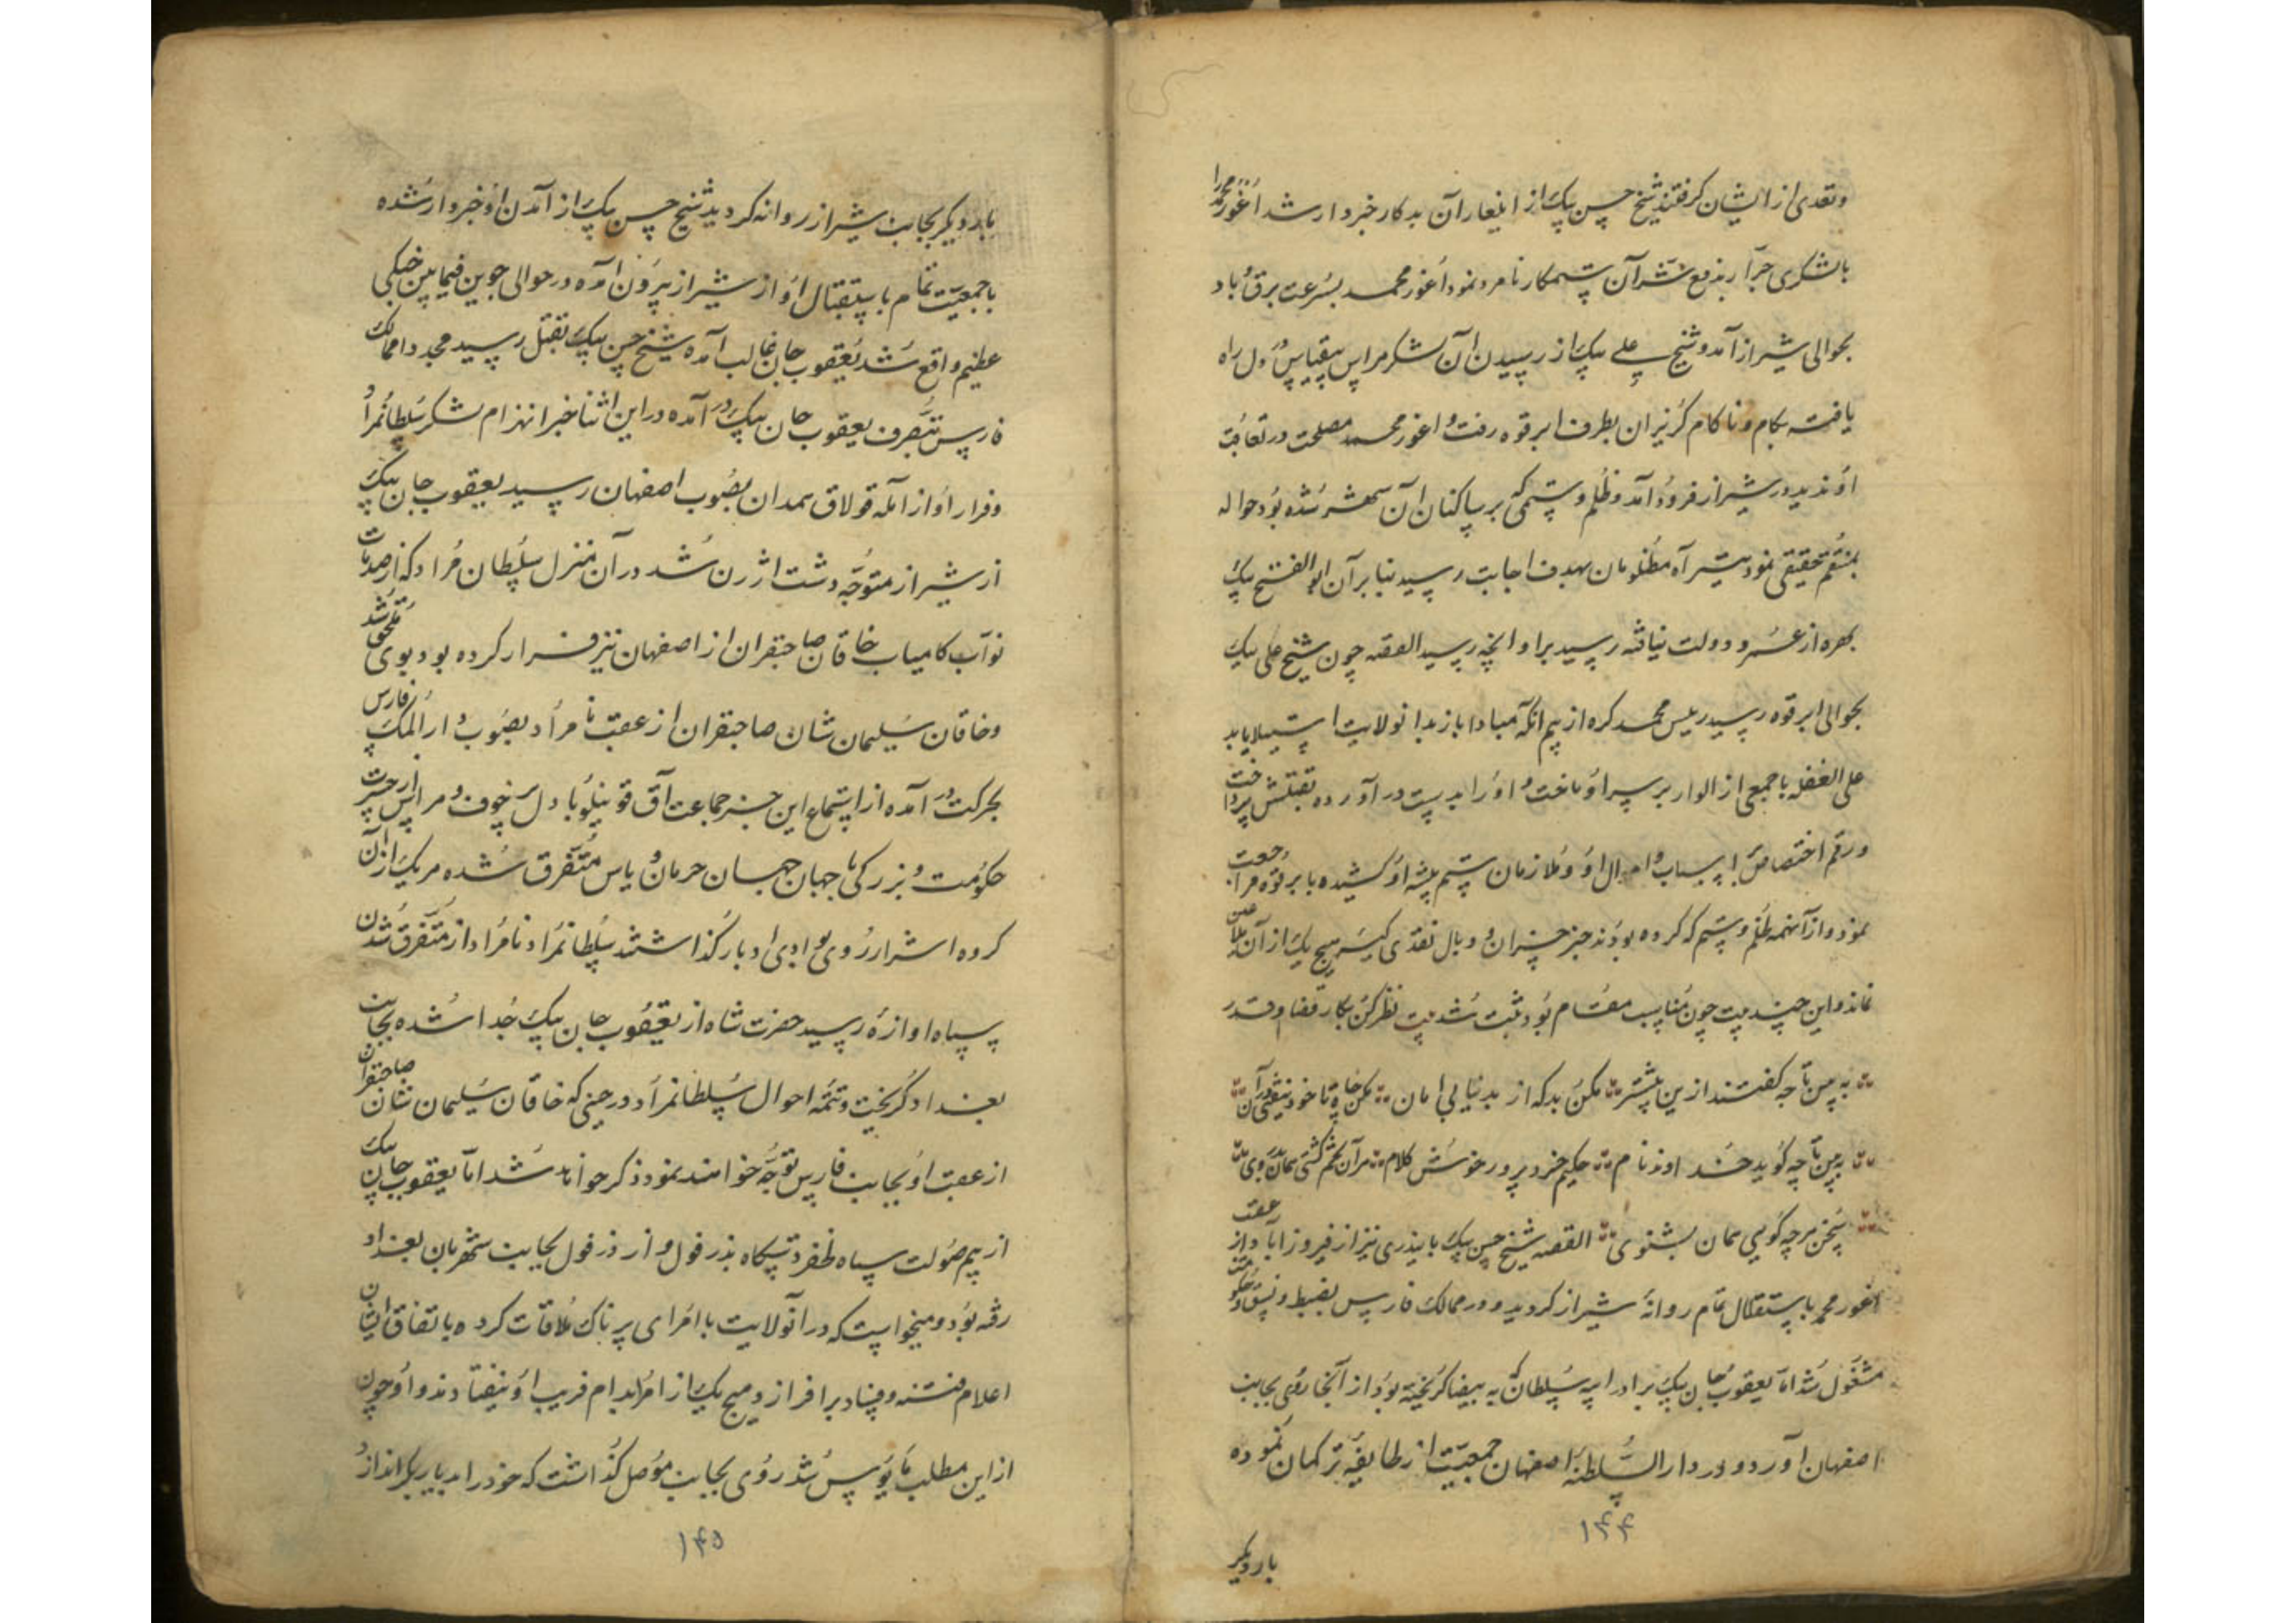 وتعدی از ایشان کرفتند شیخ حسن بیک از ایلغار آن بدکار خبردار شد اغورمحمد را
بالشکری جرار بدفع شر آن ستمکار نامرد نمود اغورمحمد بسرعت برق و باد
بحوالی شیراز آمد و شیخ علی بیک از رسیدن آن لشکر هراس بیقیاس در دل راه
یافته بکام و ناکام کریزان بطرف ابرقوه رفت و اغورمحمد مصلحت در تعاقب
او ندید در شیراز فرود آمد و ظلم و ستمی که بر ساکنان آن شهر شده بود حواله
بمنتقم حقیقی نمود تیر آه مظلومان بهدف اجابت رسید بنابر آن ابوالفتح بیک
بهره از عمر و دولت نیافته رسید براو انچه رسید القصه چون شیخ علی بیک
بحوالی ابرقوه رسید رئیس محمد کره از بیم انکه مبادا باز بدانولایت استیلا یابد
علی الغفله با جمعی از الوار بر سر او تاخت و او را بدست درآورده بقتلش پرداخت
ورقم اختصاص باسباب و اموال او و ملازمان ستم پیشه او کشیده بابرقوه مراجعت
نمود و از آنهمه ظلم و ستم که کرده بودند جز خسران و وبال نقدی کیسه هیچ یک از آن
نماند و این چند بیت چون مناسب مقام بود ثبت شد بیت نظر کن بکار قضا و قدر
به بین تا چه کفتند ازین پیشتر مکن بد که از بد نیابی امان مکن چاه تا خود نیفتی در آن
ببین تا چه کوید خداوند نام حکیم خردپرور خوش کلام هرآن تخم کشتی همان بدروی
سخن هرچه کویی همان بشنوی القصه شیخ حسن بیک بایندری نیز از فیروزآباد از عقب
اغورمحمد باستقلال تمام روانه شیراز کردید و در ممالک فارس بضبط و نسق و حکومت
مشغول شد اما یعقوب جان بیک برادر ایبه سلطان که به بیضا کریخته بود از آنجا روی بجانب
اصفهان آورد و در دارالسلطنه اصفهان جمعیت از طایفه ترکمان نموده
۱۴۴
بار دیکر
بار دیکر بجانب شیراز روانه کردید شیخ حسن بیک از آمدن او خبردار شده
با جمعیت تمام باستقبال او از شیراز بیرون آمده در حوالی جوین فیمابین جنکی
عظیم واقع شد یعقوب جان غالب آمده شیخ حسن بیک بقتل رسید مجددا ممالک
فارس بتصرف یعقوب جان بیک درآمده در این اثنا خبر انهزام لشکر سلطانمراد
و فرار او از المه قولاق همدان بصوب اصفهان رسید یعقوب جان بیک
از شیراز متوجه دشت اژرن شد در آن منزل سلطان مراد که از صدمات
نواب کامیاب خاقان صاحبقران از اصفهان نیز فرار کرده بود بوی ملحق شد
وخاقان سلیمان شان صاحبقران از عقب نامراد بصوب دارالملک فارس
بحرکت درآمده از استماع این خبر جماعت آق قوینلو با دل پر خوف و هراس از حسرت
حکومت و بزرکی با جهان جهان حرمان و یاس متفرق شده هریک از آن
کروه اشرار روی بوادی ادبار کذاشتند سلطانمراد نامراد از متفرق شدن
سپاه و آوازه رسید حضرت شاه از یعقوب جان بیک جدا شده بجانب
بغداد کریخت و تتمه احوال سلطانمراد در حینی که خاقان سلیمان شان صاحبقران
از عقب او بجانب فارس توجه خواهند نمود ذکر خواهد شد اما یعقوب جان بیک
از بیم صولت سپاه ظفر دستکاه بدزفول و از دزفول بجانب شهربان بغداد
رفته بود و میخواست که در آنولایت با امرای پرناک ملاقات کرده باتفاق ایشان
اعلام فتنه و فساد برافرازد و هیچ یک از امرا بدام فریب او نیفتادند و او چون
از این مطلب مایوس شد روی بجانب موصل کذاشت که خود را بدیار بکر اندازد
۱۴۵